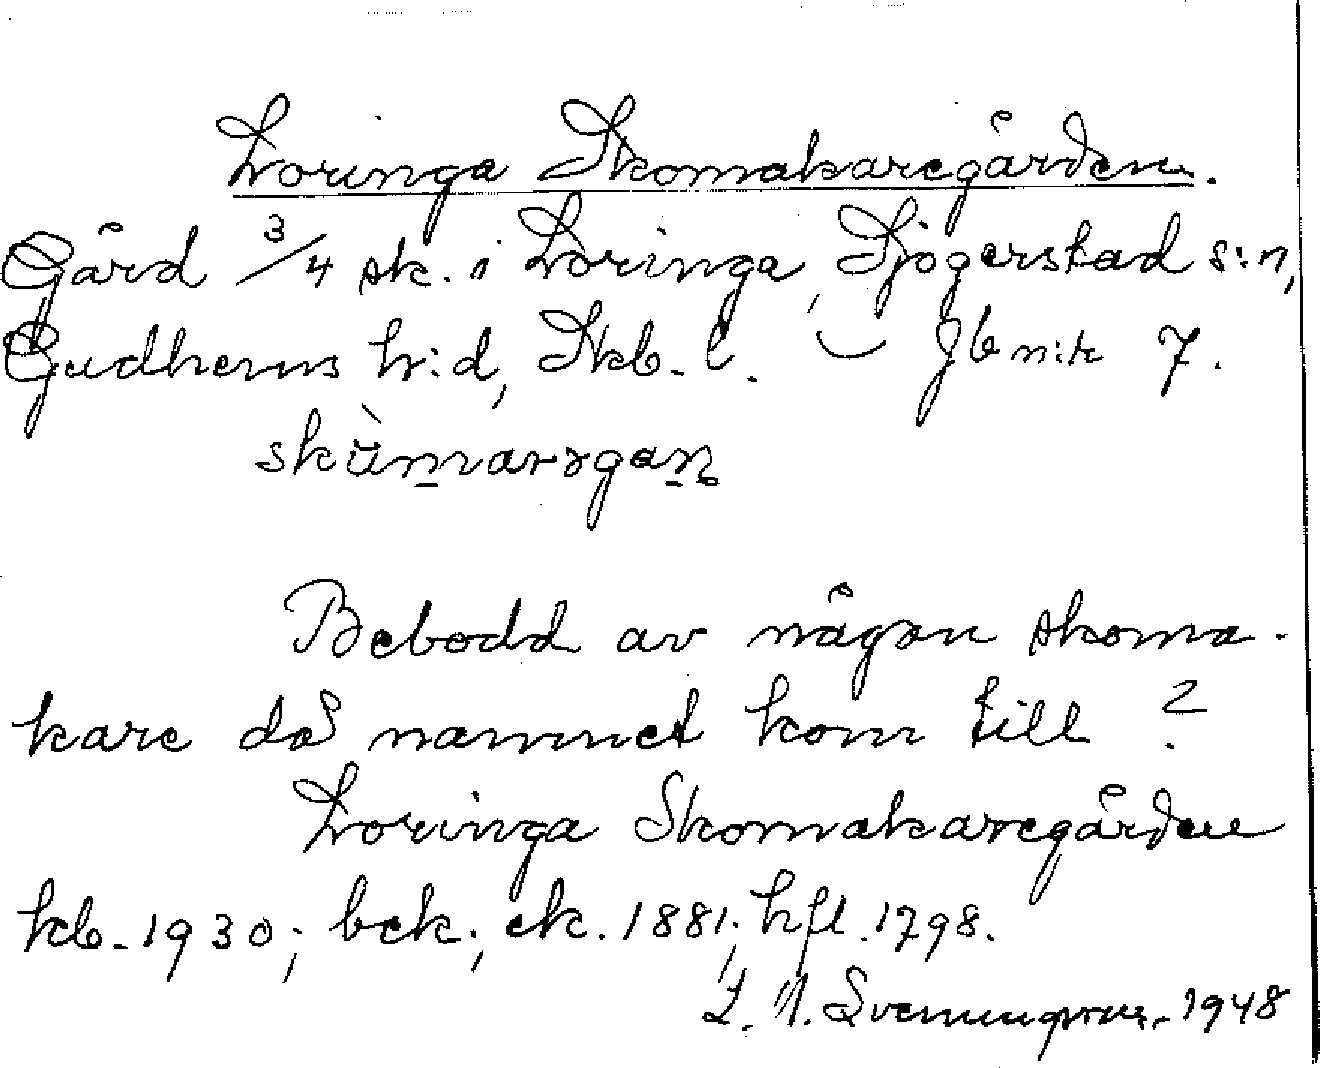 Loringa Skomakaregården.
Gård 3/4 sk. i Loringa, Sjögerstad s:n,
Gudhems h:d, Skb. l. Jb n:r 7.
skùmarɘgaṉ
Bebodd av någon skoma-
kare då namnet kom till?
Loringa Skomakaregården
kb. 1930; bek.; ek. 1881; hfl. 1798.
1948